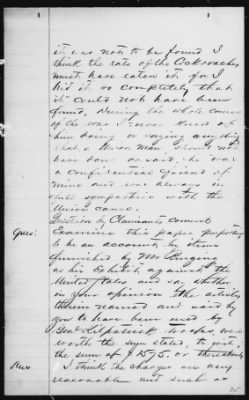 it was not to be found I
think the rats or the Cockroaches
must have eaten it for I
hid it so completely that
it could not have been
found. During the whole course
of the war I never knew of
him doing or saying anything
that a Union man should not
have done or said. he was
a confidential friend of
mine and was always in
full sympathies with the
Union cause.
Question by Claimants Counsel
Ques: Examine this paper, purporting
to be an account by items
furnished by Mr
as his Exhibit against the
United States and say whether
in your opinion the articles
therein named and said by
you to have been used by
Genl Kilpatrick troops, were
worth the sum stated, to wit,
the sum of $ or thereabouts
Ans I think the charges are very
reasonable and such as